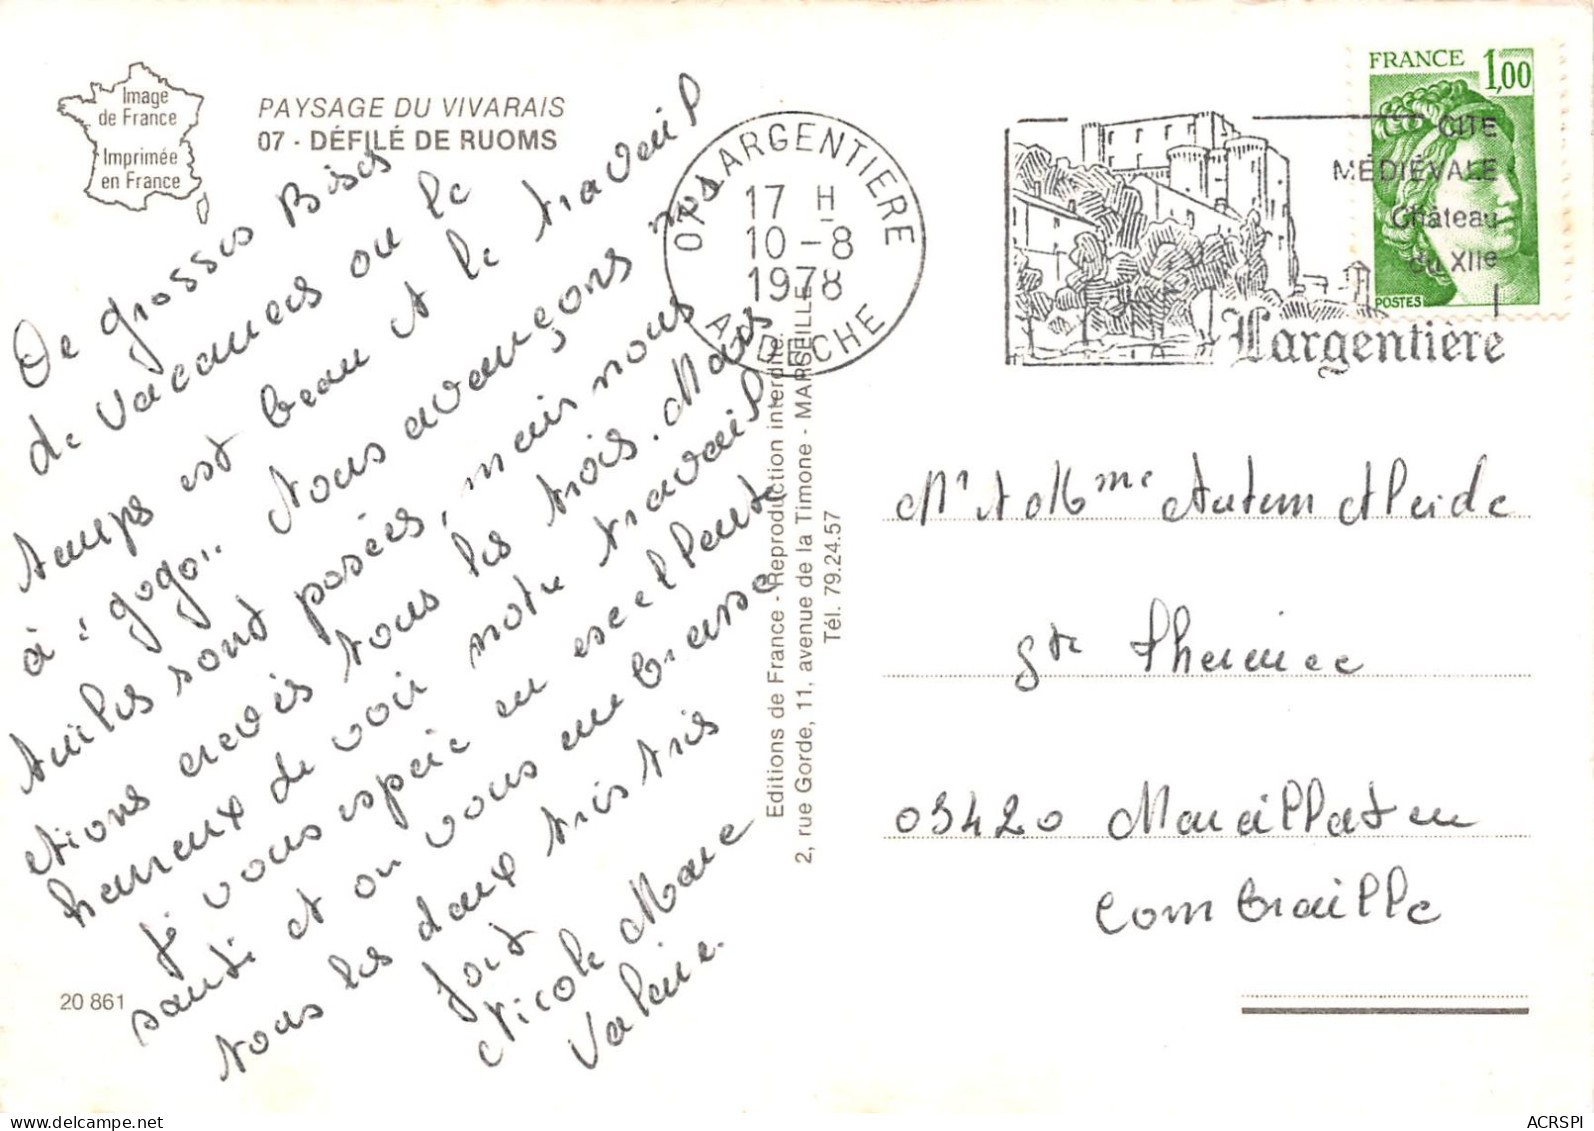 Image
de France
Imprimée
en France
PAYSAGE DU VIVARAIS
07 - DÉFILÉ DE RUOMS
De grosses Bises
de Vacances ou le
temps est beau et le travail
à "gogo". Nous avançons nos
tuiles sont posées, mais nous
étions crevés tous les trois. Mais
heureux de voir notre travail.
Je vous espère en excellente
santé et on vous embrasse
tous les deux très très
fort
Nicole Marc
Valérie.
20 861
Editions de France - Reproduction interdite.
2, rue Gorde, 11, avenue de la Timone - MARSEILLE
Tél. 79.24.57
07 LARGENTIERE
17 H
10 - 8
1978
ARDECHE
CITE
MÉDIÉVALE
Château
du XIIe
Largentière
FRANCE 1,00
POSTES
Mr et Mme Autem Alcide
Ste Thérence
03420 Marcillat en
Combraille
ACRSPI